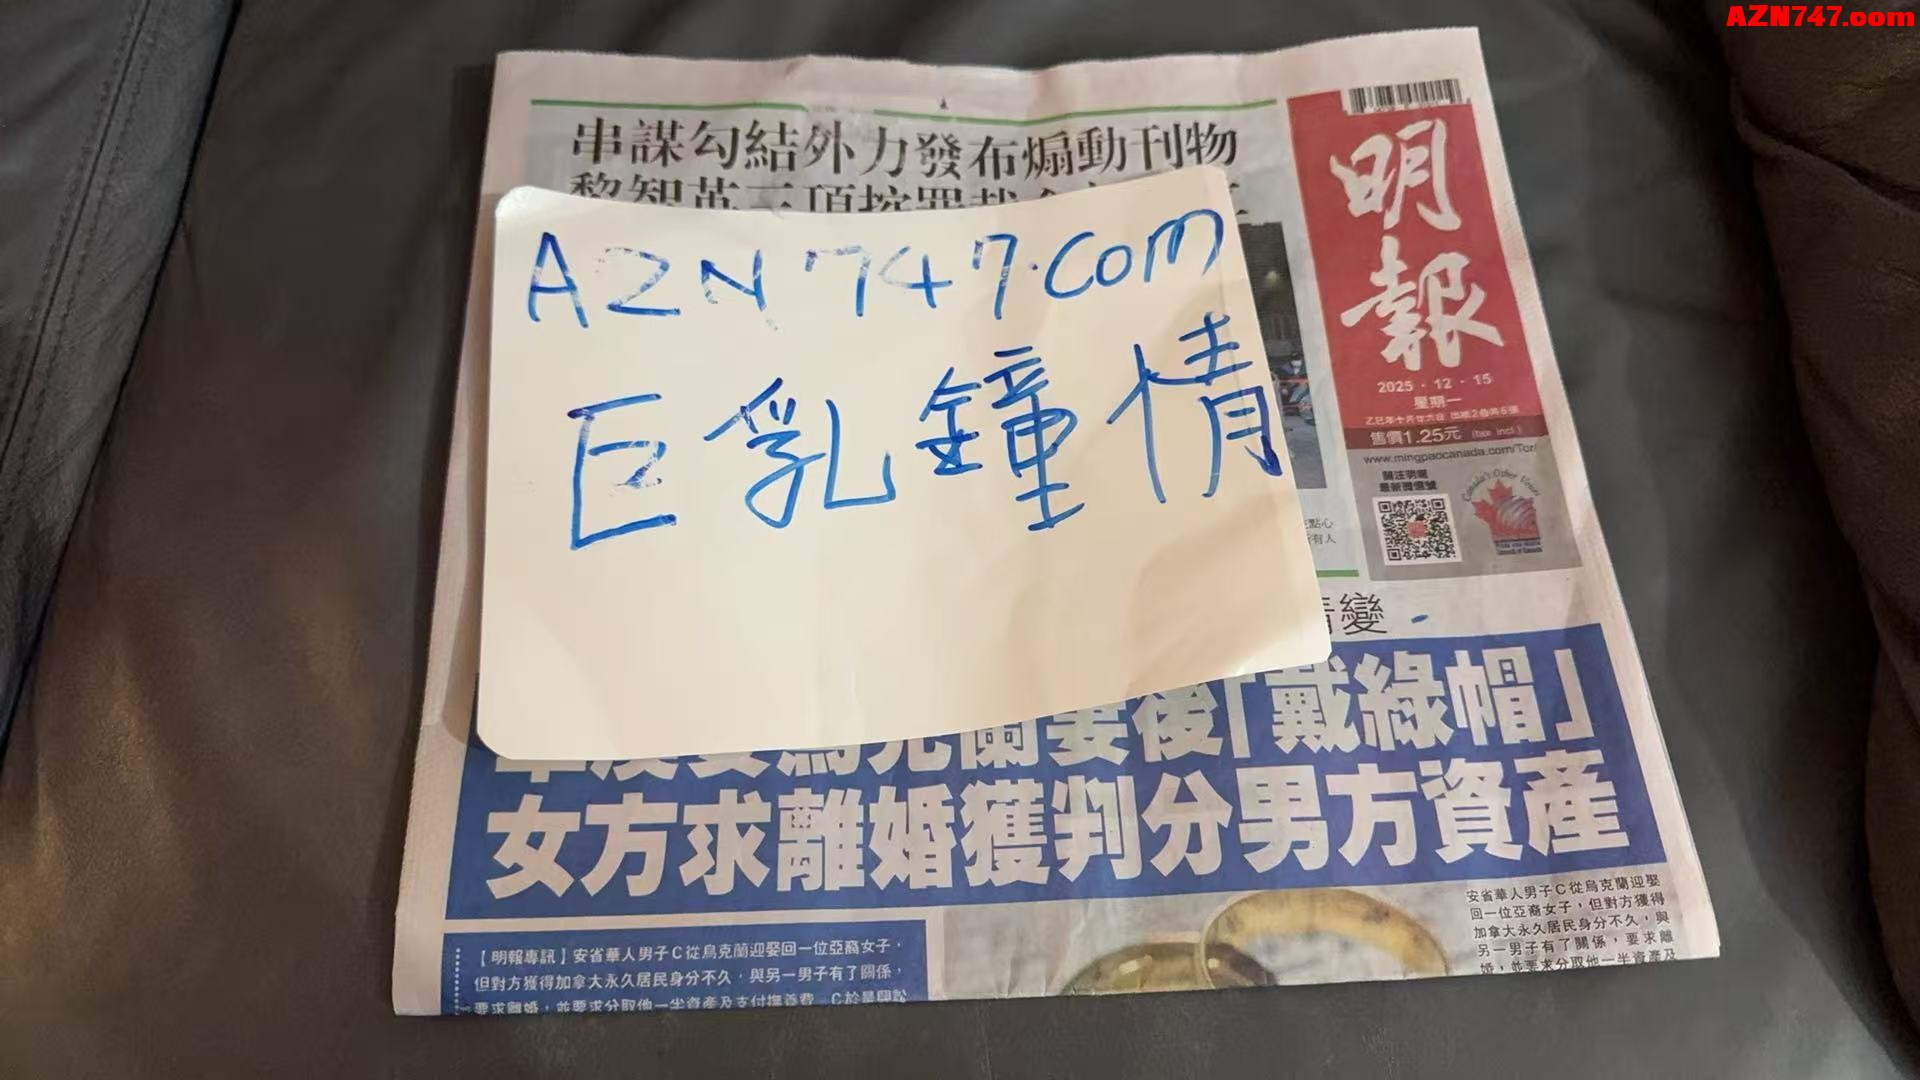 AZN747.com
串謀勾結外力發布煽動刊物
明報
2025・12・15
星期一
乙巳年十月廿六日 出紙2叠共6張
售價1.25元 (tax incl.)
www.mingpaocanada.com/Tor/
關注明報
最新微信號
AZN747.com
巨乳鐘情
情變
後「戴綠帽」
女方求離婚獲判分男方資產
【明報專訊】安省華人男子C從烏克蘭迎娶回一位亞裔女子，
但對方獲得加拿大永久居民身分不久，與另一男子有了關係，
要求離婚，並要求分取他一半資產及支付撫養費。C於是興訟
安省華人男子C從烏克蘭迎娶
回一位亞裔女子，但對方獲得
加拿大永久居民身分不久，與
另一男子有了關係，要求離
婚，並要求分取他一半資產及